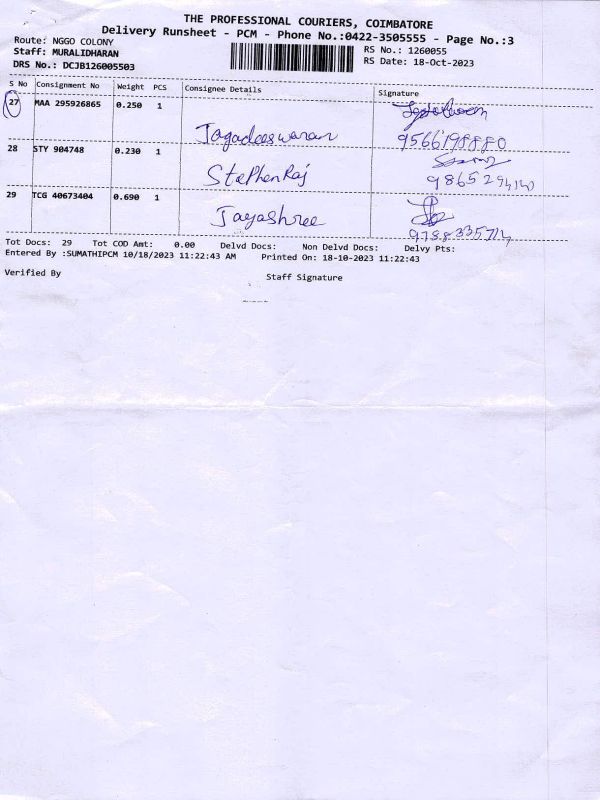 THE PROFESSIONAL COURIERS, COIMBATORE
Delivery Runsheet - PCM - Phone No.:0422-3505555 - Page No.:3
Route: NGGO COLONY RS No.: 1260055
Staff: MURALIDHARAN RS Date: 18-Oct-2023
DRS No.: DCJB126005503
S No Consignment No Weight PCS Consignee Details Signature
27 MAA 295926865 0.250 1
Jagadeeswaran 9566198880
28 STY 904748 0.230 1
StePhenRaj 9865294140
29 TCG 40673404 0.690 1
Jayashree
9788335714
Tot Docs: 29 Tot COD Amt: 0.00 Delvd Docs: Non Delvd Docs: Delvy Pts:
Entered By :SUMATHIPCM 10/18/2023 11:22:43 AM Printed On: 18-10-2023 11:22:43
Verified By Staff Signature